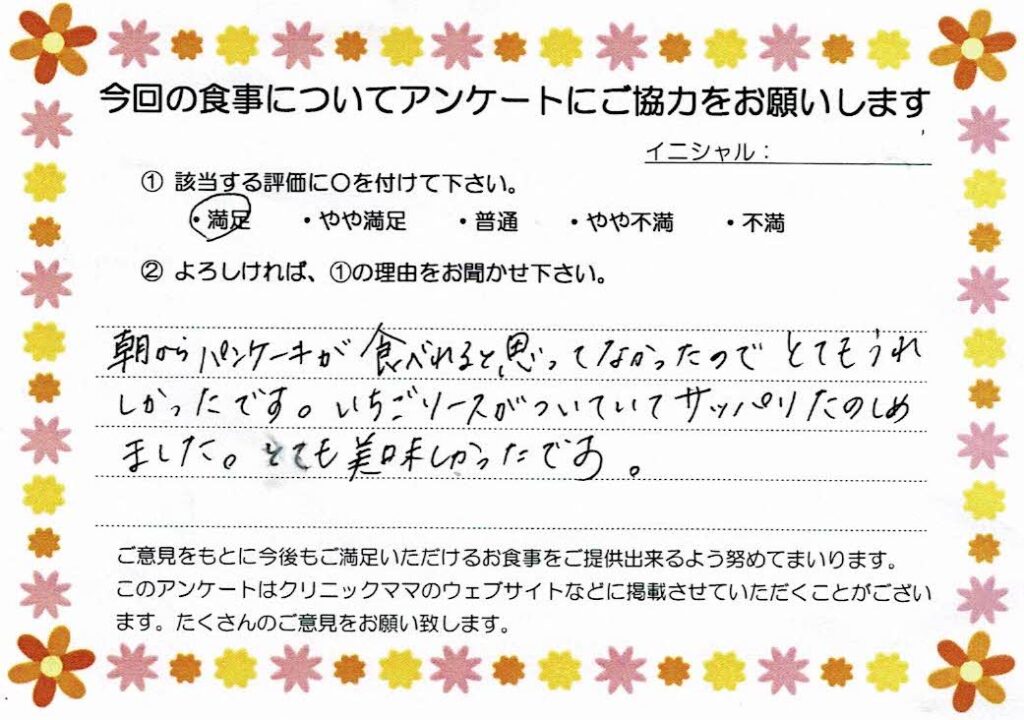 今回の食事についてアンケートにご協力をお願いします
イニシャル：
① 該当する評価に〇を付けて下さい。
・満足 ・やや満足 ・普通 ・やや不満 ・不満
② よろしければ、①の理由をお聞かせ下さい。
朝からパンケーキが食べれると思ってなかったのでとてもうれ
しかったです。いちごソースがついていてサッパリたのしめ
ました。とても美味しかったです。
ご意見をもとに今後もご満足いただけるお食事をご提供出来るよう努めてまいります。
このアンケートはクリニックママのウェブサイトなどに掲載させていただくことがござい
ます。たくさんのご意見をお願い致します。